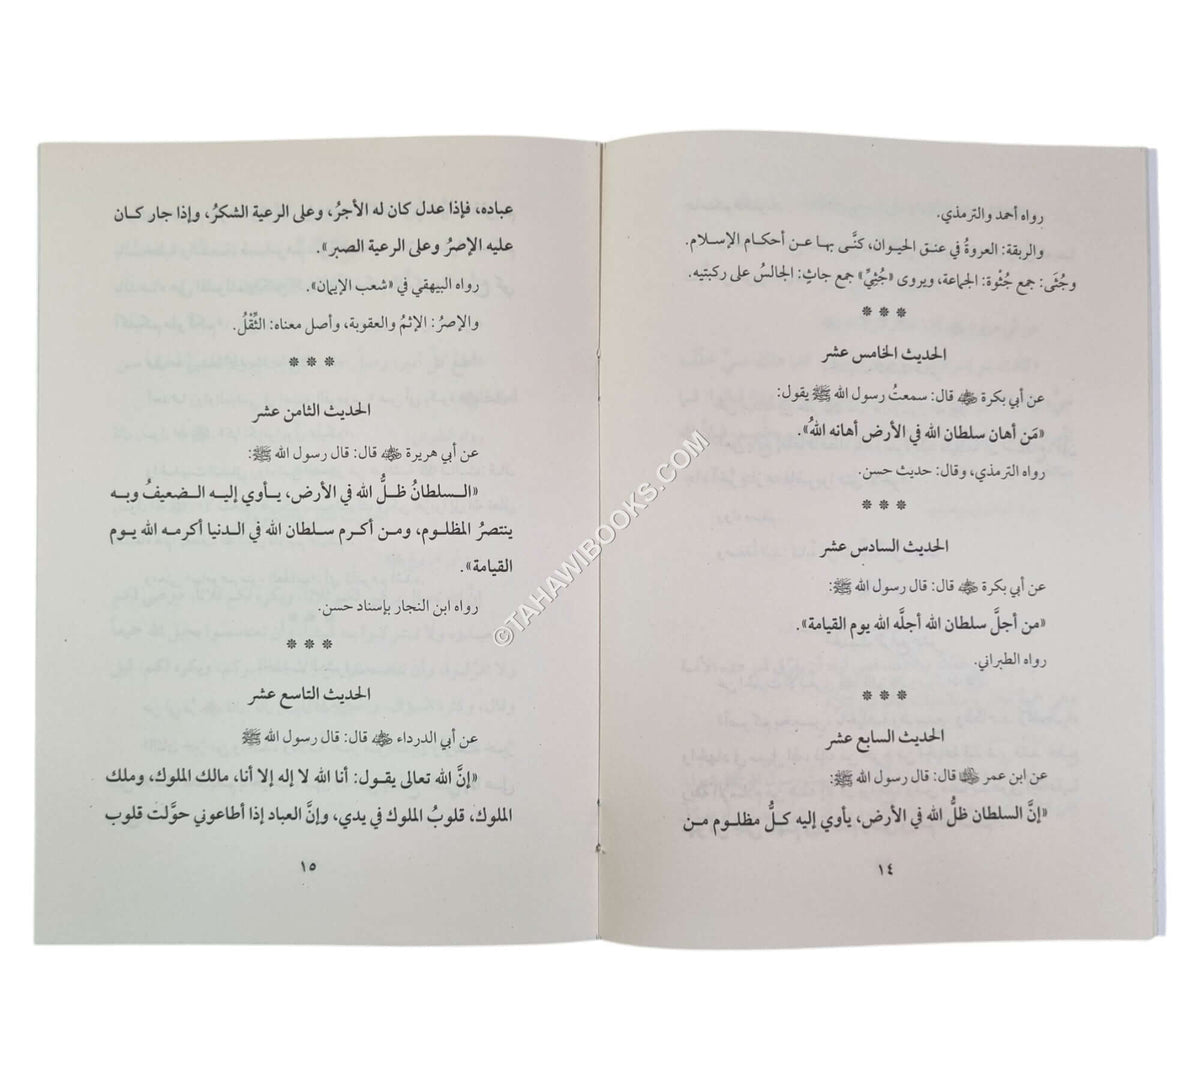 رواه أحمد والترمذي.
والربقة: العروةُ في عنق الحيوان، كنَّى بها عن أحكام الإسلام.
وجُثَى: جمع جُثْوة: الجماعة، ويروى «جُثِيِّ» جمع جاثٍ: الجالسُ على ركبتيه.
* * *
الحديث الخامس عشر
عن أبي بكرة رضي الله عنه قال: سمعتُ رسول الله ﷺ يقول:
«مَن أهان سلطان الله في الأرض أهانه اللهُ».
رواه الترمذي، وقال: حديث حسن.
* * *
الحديث السادس عشر
عن أبي بكرة رضي الله عنه قال: قال رسول الله ﷺ:
«من أجلَّ سلطان الله أجلَّه الله يوم القيامة».
رواه الطبراني.
* * *
الحديث السابع عشر
عن ابن عمر رضي الله عنهما قال: قال رسول الله ﷺ:
«إنَّ السلطان ظلُّ الله في الأرض، يأوي إليه كلُّ مظلوم من
١٤
عباده، فإذا عدل كان له الأجرُ، وعلى الرعية الشكرُ، وإذا جار كان
عليه الإصرُ وعلى الرعية الصبر».
رواه البيهقي في «شعب الإيمان».
والإصرُ: الإثمُ والعقوبة، وأصل معناه: الثِّقْلُ.
* * *
الحديث الثامن عشر
عن أبي هريرة رضي الله عنه قال: قال رسول الله ﷺ:
«السلطانُ ظلُّ الله في الأرض، يأوي إليه الضعيفُ وبه
ينتصرُ المظلوم، ومن أكرم سلطان الله في الدنيا أكرمه الله يوم
القيامة».
رواه ابن النجار بإسناد حسن.
* * *
الحديث التاسع عشر
عن أبي الدرداء رضي الله عنه قال: قال رسول الله ﷺ
«إنَّ الله تعالى يقول: أنا الله لا إله إلا أنا، مالك الملوك، وملك
الملوك، قلوبُ الملوك في يدي، وإنَّ العباد إذا أطاعوني حوَّلت قلوب
١٥
©TAHAWIBOOKS.COM